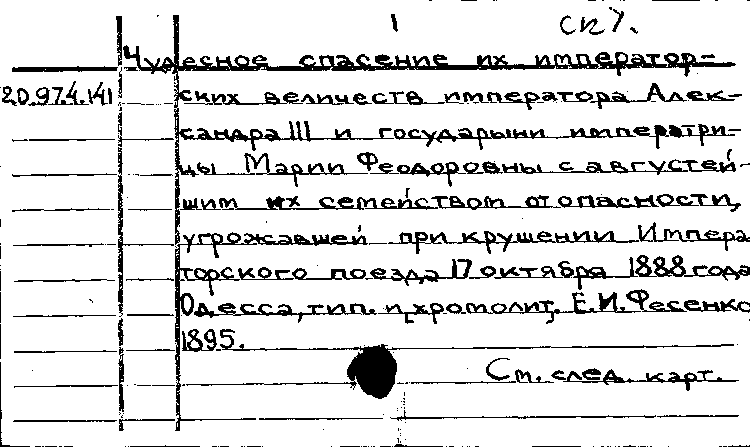 1
Чудесное спасение их император-
20.97.4.141
ских величеств императора Алек-
сандра III и государыни императри-
цы Марии Феодоровны с августей-
шим их семейством от опасности,
угрожавшей при крушении Импера
торского поезда 17 октября 1888 года
Одесса, тип. и хромолит. Е.И. Фесенко
1895.
См. след. карт.